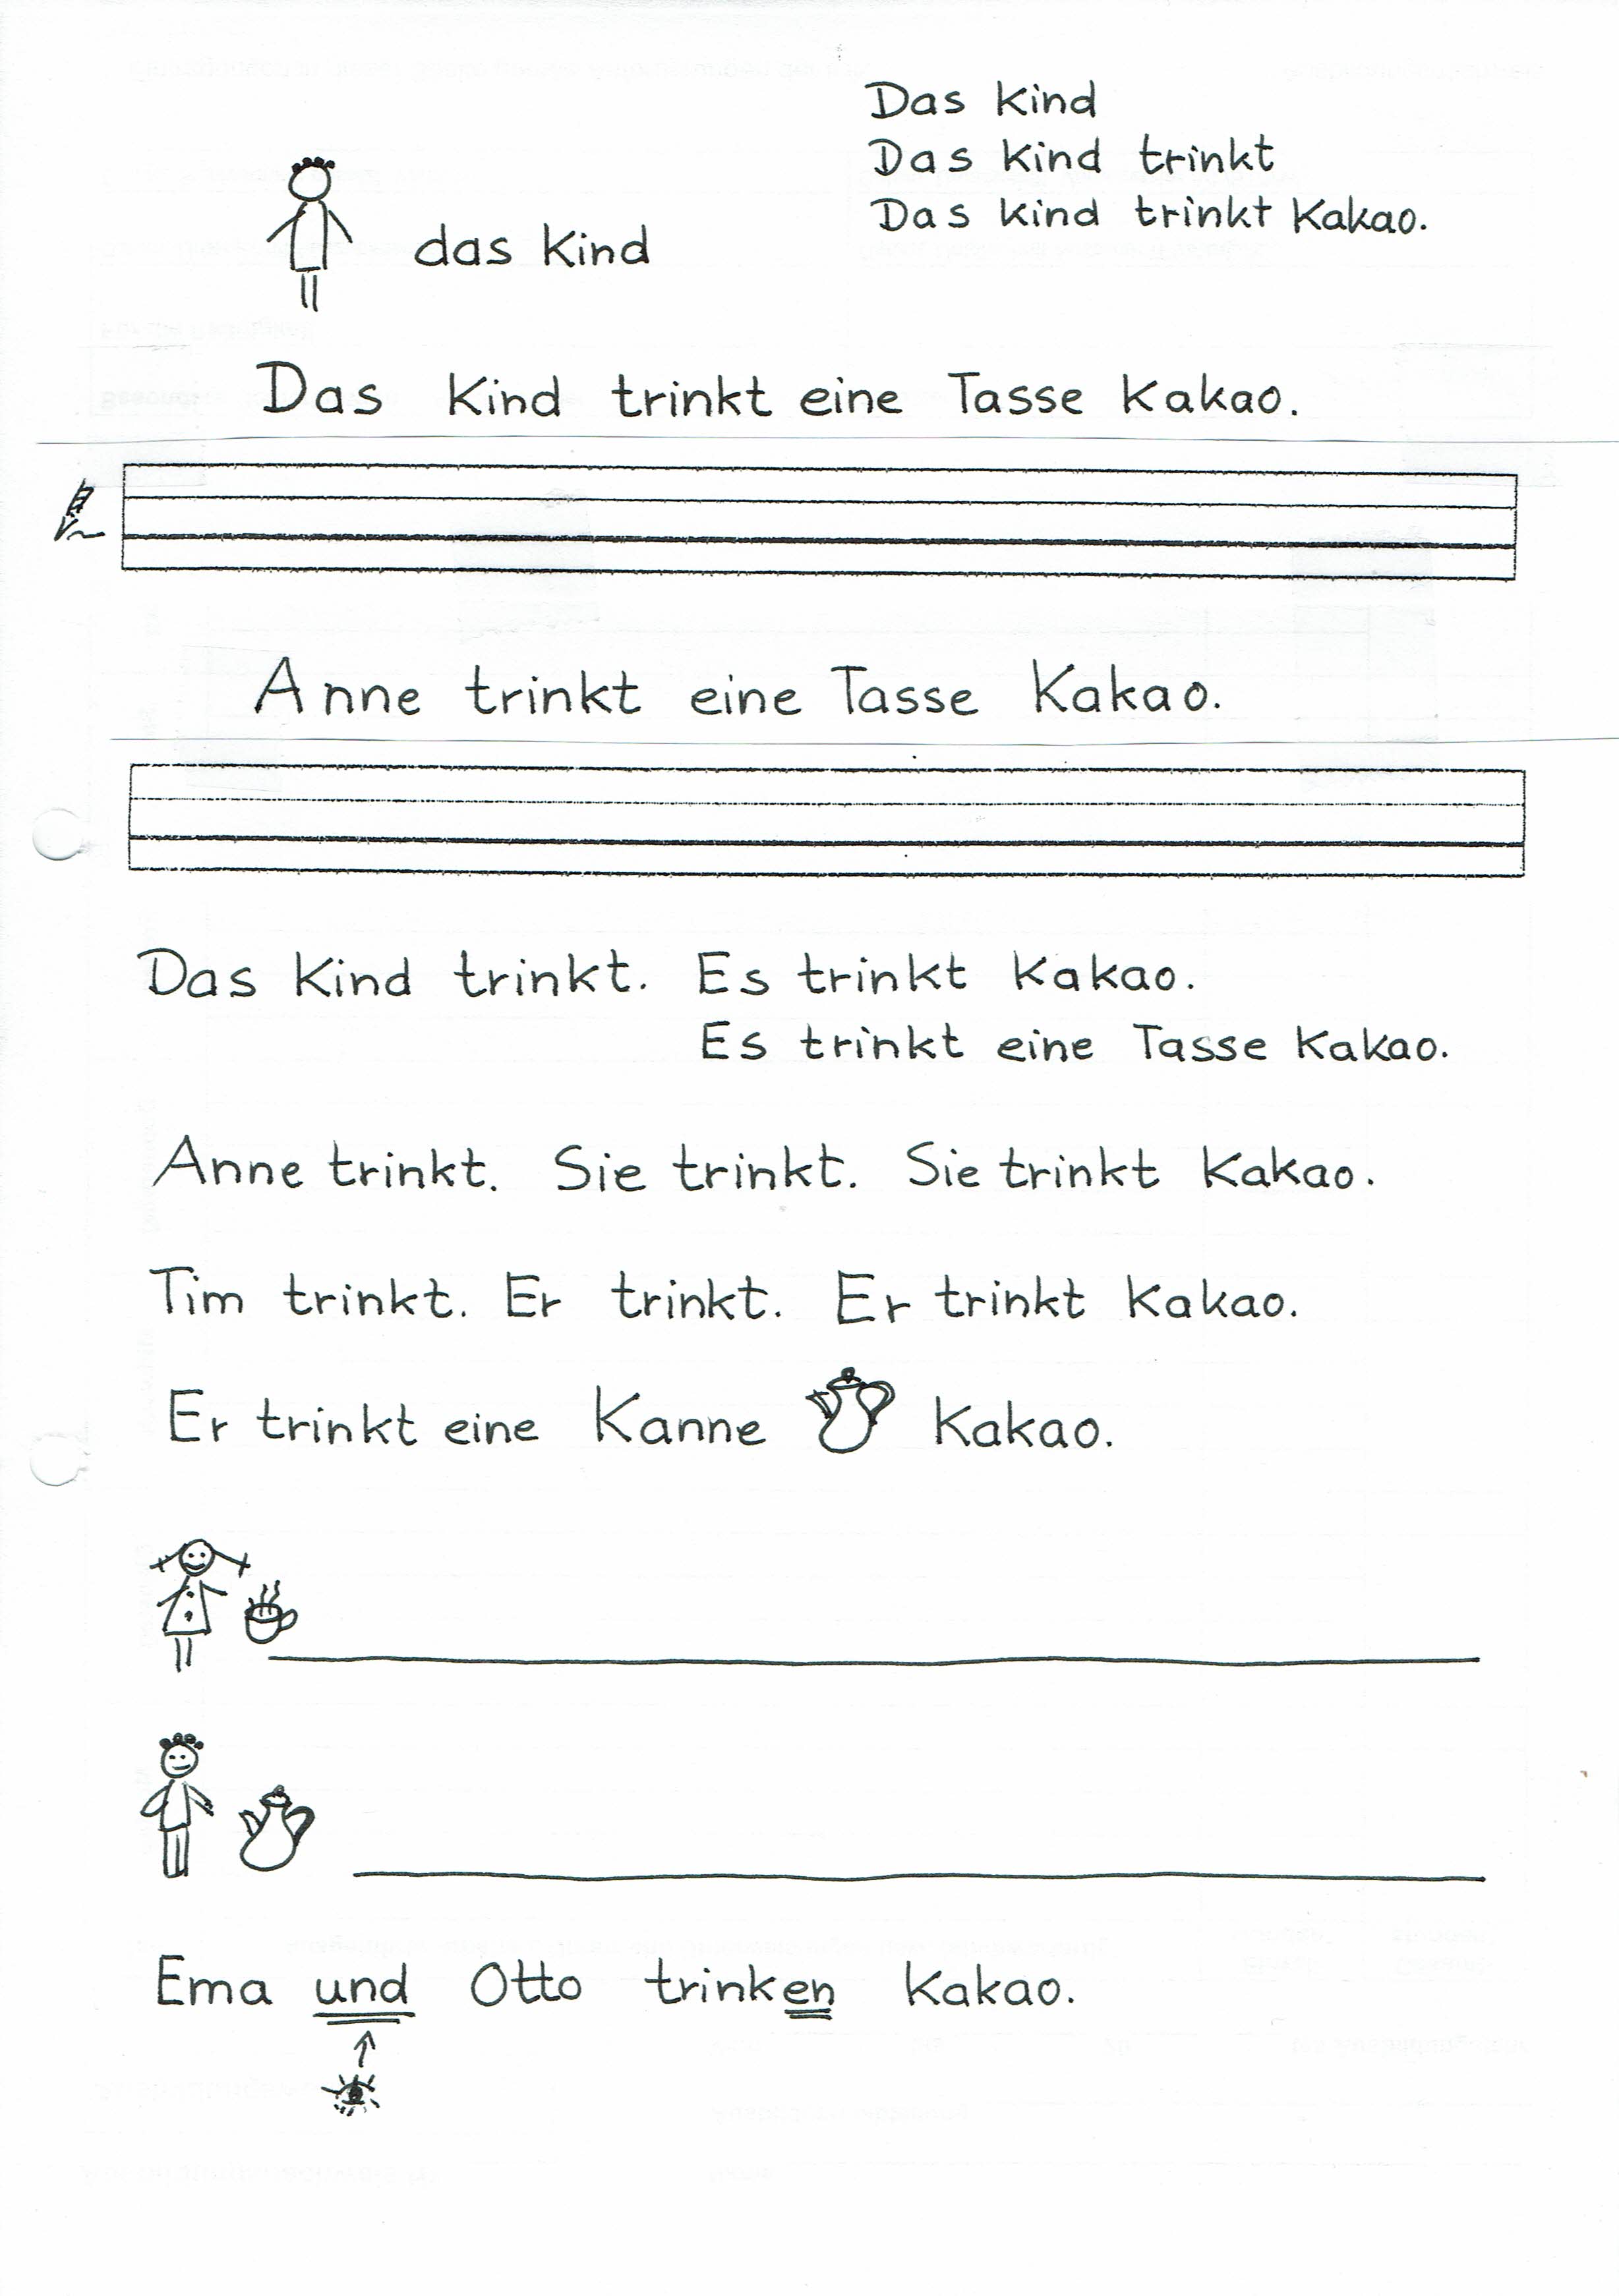 Das Kind
Das Kind trinkt
Das Kind trinkt Kakao.
das Kind
Das Kind trinkt eine Tasse Kakao.
Anne trinkt eine Tasse Kakao.
Das Kind trinkt. Es trinkt Kakao.
Es trinkt eine Tasse Kakao.
Anne trinkt. Sie trinkt. Sie trinkt Kakao.
Tim trinkt. Er trinkt. Er trinkt Kakao.
Er trinkt eine Kanne Kakao.
Ema und Otto trinken Kakao.